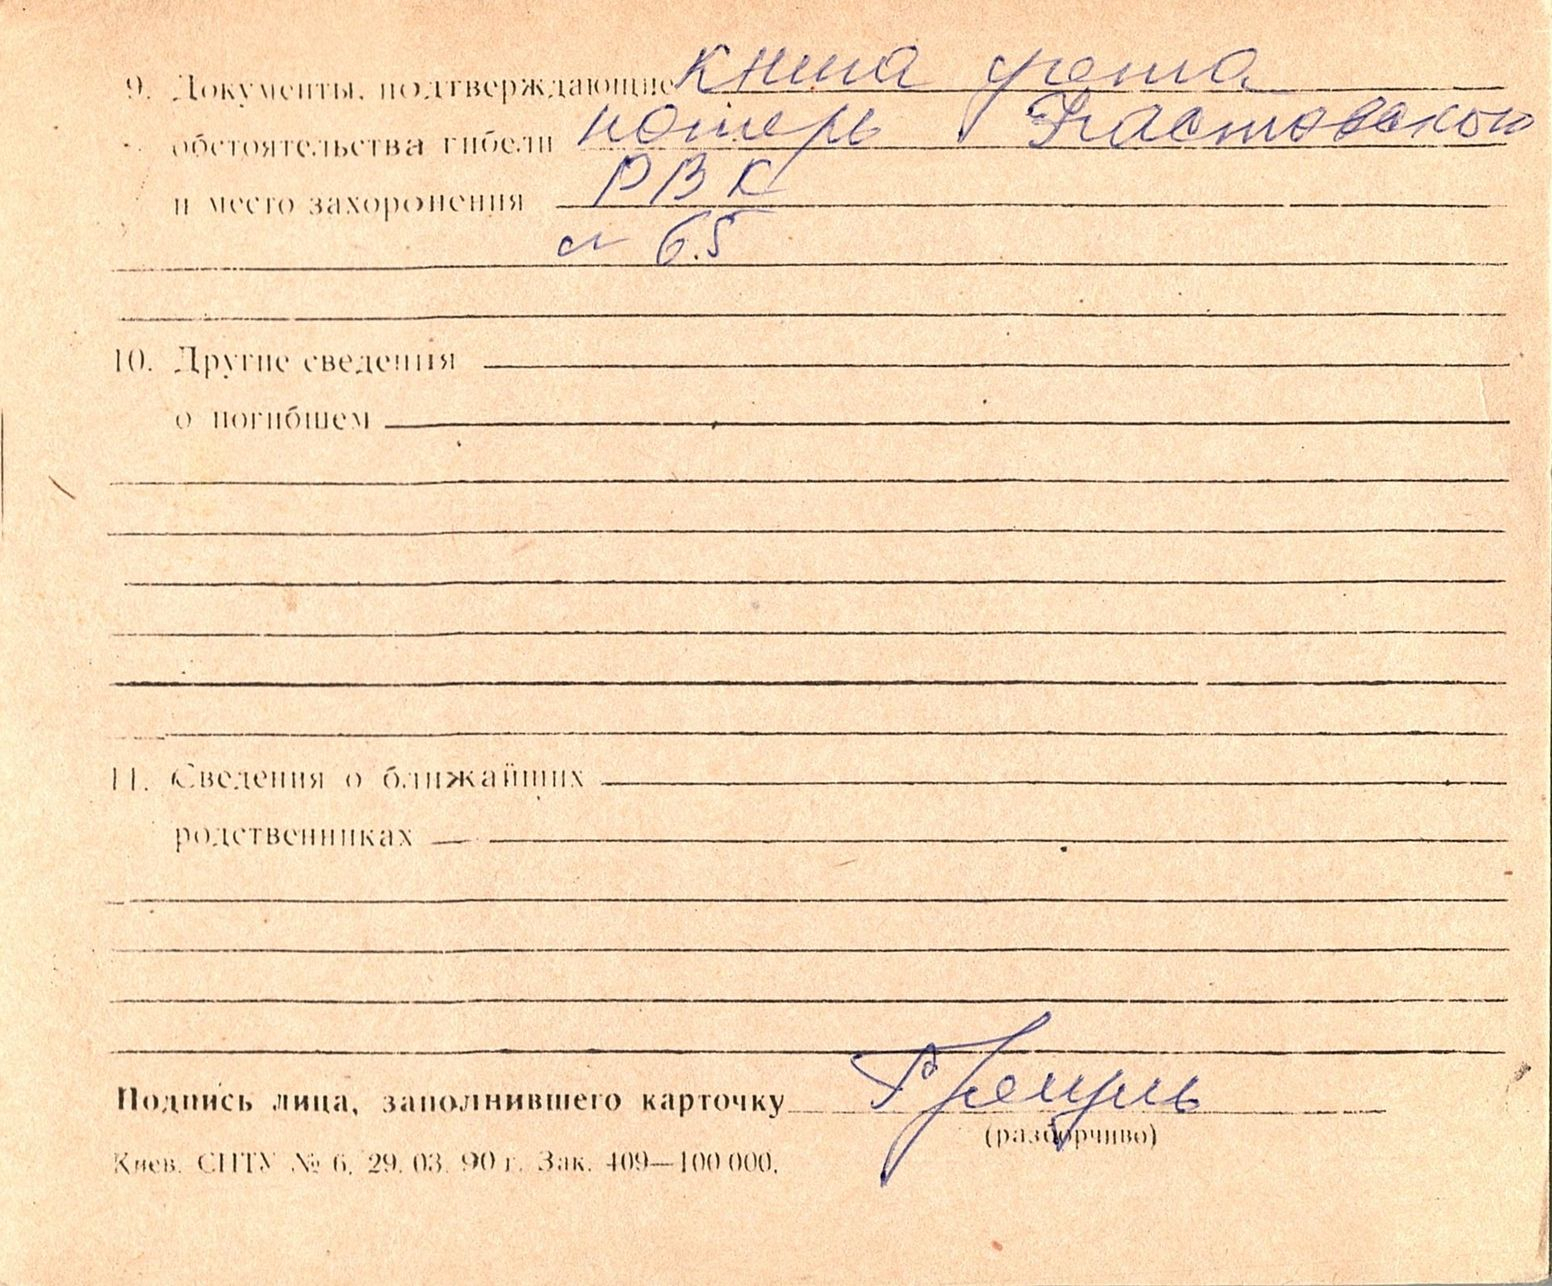 9. Документы, подтверждающие книга учета
обстоятельства гибели потерь Фастовского
и место захоронения РВК
65
10. Другие сведения
о погибшем
11. Сведения о ближайших
родственниках
Подпись лица, заполнившего карточку
(разборчиво)
Киев. СПТУ № 6. 29. 03. 90 г. Зак. 409—100 000.